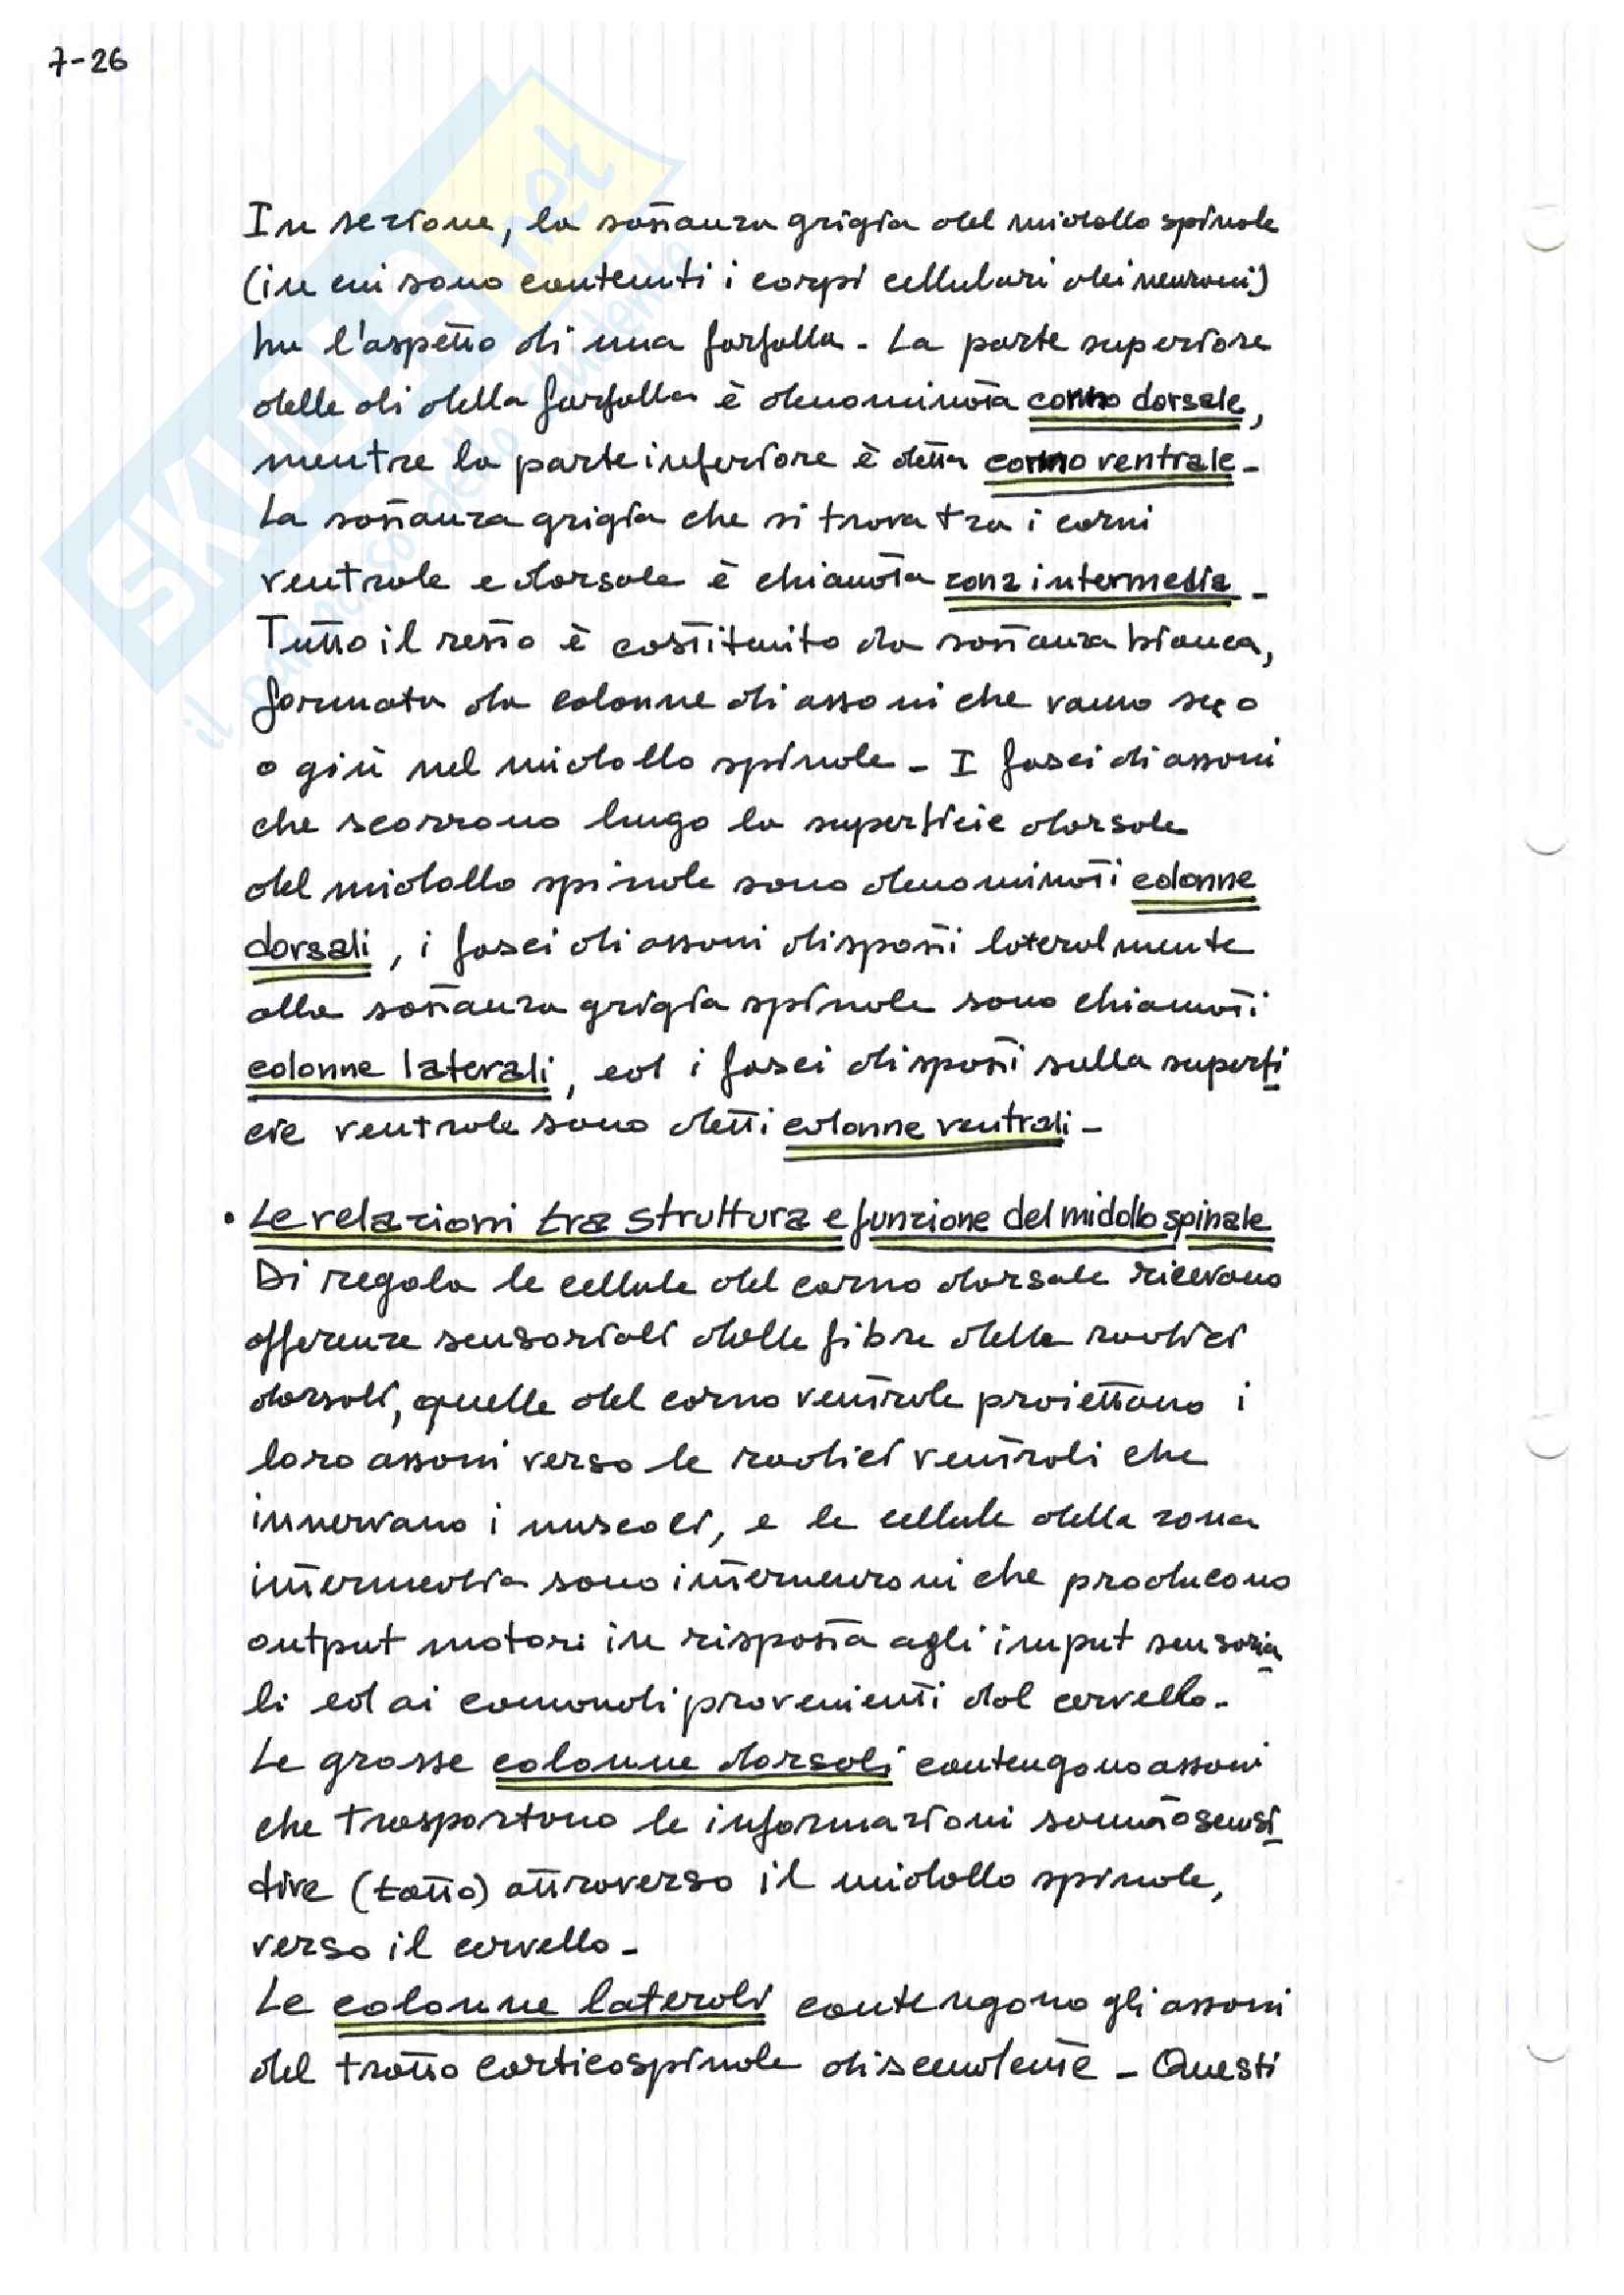 7-26
SKUOLA.net
il paradiso dello studente
In sezione, la sostanza grigia del midollo spinale
(in cui sono contenuti i corpi cellulari dei neuroni)
ha l'aspetto di una farfalla. La parte superiore
delle ali della farfalla è denominata corno dorsale,
mentre la parte inferiore è detta corno ventrale.
La sostanza grigia che si trova tra i corni
ventrale e dorsale è chiamata zona intermedia.
Tutto il resto è costituito da sostanza bianca,
formata da colonne di assoni che vanno su o
o giù nel midollo spinale. I fasci di assoni
che scorrono lungo la superficie dorsale
del midollo spinale sono denominati colonne
dorsali, i fasci di assoni disposti lateralmente
alla sostanza grigia spinale sono chiamati
colonne laterali, ed i fasci disposti sulla superfi
cie ventrale sono detti colonne ventrali.
• Le relazioni tra struttura e funzione del midollo spinale
Di regola le cellule del corno dorsale ricevono
afferenze sensoriali dalle fibre delle radici
dorsali, quelle del corno ventrale proiettano i
loro assoni verso le radici ventrali che
innervano i muscoli, e le cellule della zona
intermedia sono interneuroni che producono
output motori in risposta agli imput sensoria
li ed ai comandi provenienti dal cervello.
Le grosse colonne dorsali contengono assoni
che trasportano le informazioni somatosensi
tive (tatto) attraverso il midollo spinale,
verso il cervello.
Le colonne laterali contengono gli assoni
del tratto corticospinale discendente. Questi